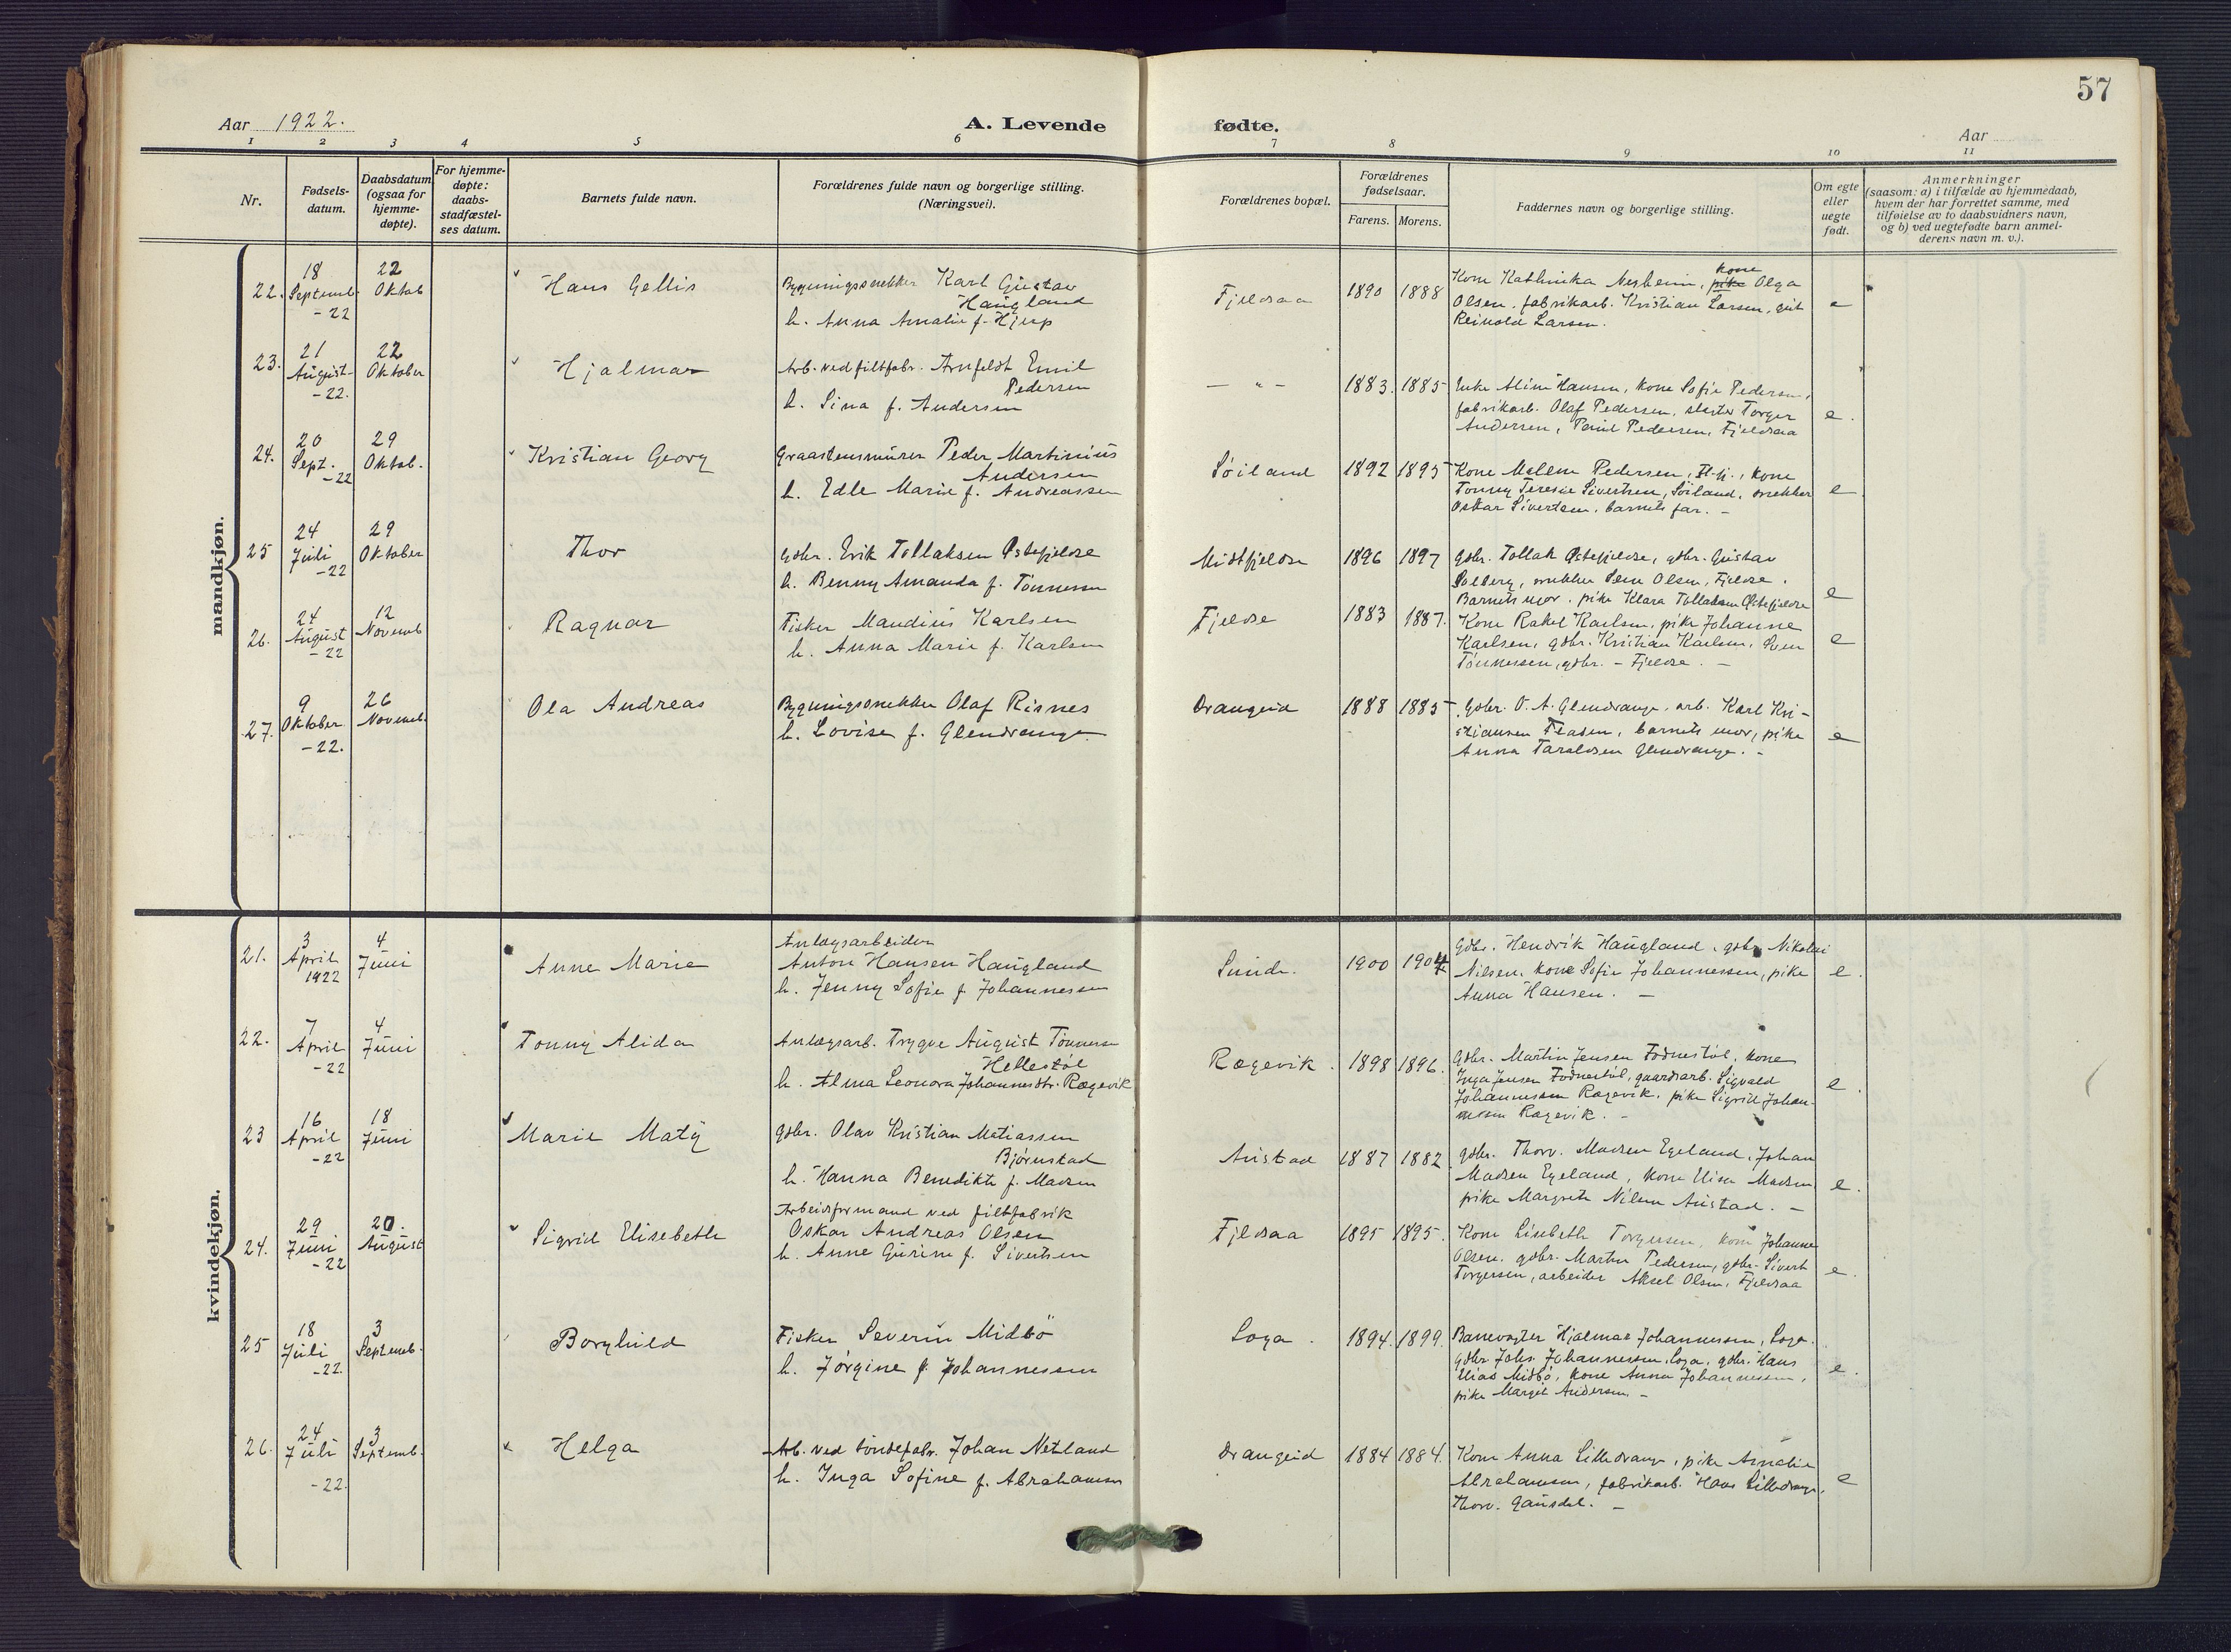 57
Aar 1922.
A. Levende fødte.
Aar
1 2 3 4 5 6 7 8 9 10 11
Nr.
Fødsels-
datum.
Daabsdatum
(ogsaa for
hjemme-
døpte).
For hjemme-
døpte:
daabs-
stadfæstel-
ses datum.
Barnets fulde navn.
Forældrenes fulde navn og borgerlige stilling.
(Næringsvei).
Forældrenes bopæl.
Forældrenes
fødselsaar.
Farens. Morens.
Faddernes navn og borgerlige stilling.
Om egte
eller
uegte
født.
Anmerkninger
(saasom: a) i tilfælde av hjemmedaab,
hvem der har forrettet samme, med
tilføielse av to daabsvidners navn,
og b) ved uegtefødte barn anmel-
derens navn m. v.).
mandkjøn.
22. 18 Septemb. -22
22 Oktob
Hans Gellis
Bygningssnekker Karl Gustav
Haugland
h. Anna Amalie f. Hjelp
Fjeldsaa
1890 1888
kone
Kone Kathinka Nesheim, pike Olga
Olsen, fabrikarb. Kristian Larsen, gut
Reinold Larsen.
e
23. 21 August -22.
22 Oktober
Hjalmar
Arb. ved filtfabr. Arnfeldt Emil
Pedersen
h. Sina f. Andersen
— " —
1883. 1885
Enke Aline Hansen, kone Sofie Pedersen,
fabrikarb. Olaf Pedersen, Torger
Andersen, Pedersen, Fjeldsaa
e.
24. 20 Sept. -22
29 Oktob.
Kristian Georg
Graastensmurer Peder Martinius
Andersen
h. Edle Marie f. Andreassen
Söiland
1892 1895
Kone Malene Pedersen, kone
Tonny Teresie Sivertsen, Söiland, snekker
Oskar Sivertsen, barnets far. -
e
25 24 Juli -22
29 Oktober
Thor
gdbr. Erik Tollaksen Østefjeldse
h. Benny Amanda f. Tönnessen
Midtfjeldse
1896 1897
gdbr. Tollak Østefjeldse, gdbr. Gustav
Solberg, snekker Olsen, Fjeldse.
Barnets mor, pike Klara Tollaksen Østefjeldse
e
26. 24 August -22
12 Novemb
Ragnar
Fisker Maudius Karlsen
h. Anna Marie f. Karlsen
Fjeldse
1883 1887.
Kone Rakel Karlsen, pike Johanne
Karlsen, gdbr. Kristian Karlsen, Sven
Tönnessen, gdbr. - Fjeldse. -
e
27. 9 Oktober -22.
26 Novemb.
Ola Andreas
Bygningssnekker Olaf Risnes
h. Lovise f. Glendrange
Drangeid
1888 1885
gdbr. O. A. Glendrange, arb. Karl Kri-
stiansen barnets mor, pike
Anna Taraldsen Glendrange. -
e
kvindekjøn.
21. 3 April 1922
4 Juni
Anne Marie
Anlægsarbeider
Anton Hansen Haugland
h. Jenny Sofie f. Johannessen
Sunde.
1900 1904
gdbr. Hendrik Haugland, gdbr. Nikolai
Nilsen, kone Sofie Johannessen, pike
Anna Hansen. —
e.
22. 7 April -22
4 Juni
Tonny Alida
Anlægsarb. Trygve August Tönnessen
Hellestöl
h. Alma Leonora Johannesdtr. Rægevik
Rægevik.
1898 1896.
gdbr. Martin Jensen Fodnestöl, kone
Inga Jensen Fodnestöl, gaardsarb. Sigvald
Johannessen Rægevik, pike Sigrid Johan-
nessen Rægevik. -
e.
23 16 April -22
18 Juni
Marie Maty
gdbr. Olav Kristian Matiassen
Bjørnstad
h. Hanna Benedikte f. Madsen
Austad
1887 1882
gdbr. Thorv. Madsen Egeland, Johan
Madsen Egeland, kone Elise Madsen
pike Margrete Nilsen Austad. -
e.
24. 29 Juni -22
20. August
Sigrid Elisebeth
Arbeidsformand ved filtfabrik
Oskar Andreas Olsen
h. Anne Gurine f. Sivertsen
Fjeldsaa
1895 1895.
Kone Lisebeth Torgersen, kone Johanne
Olsen, gdbr. Martin Pedersen, gdbr. Sivert
Torgersen, arbeider Aksel Olsen, Fjeldsaa
e.
25 18 Juli -22.
3 Septemb.
Borghild
Fisker Severin Midbö
h. Jörgine f. Johannessen
Loga.
1894. 1899.
Banevogter Hjalmar Johannessen, Loga.
gdbr. Johs. Johannessen, Loga, gdbr. Hans
Elias Midbö, kone Anna Johannessen,
pike Margit Andersen. -
e.
26. 24 Juli -22.
3 Septemb.
Helga
Arb. ved töndefabr. Johan Netland
h. Inga Sofine f. Abrahamsen
Drangeid
1884 1884.
Kone Anna Lilledrange, pike Amalie
Abrahamsen, fabrikarb. Hans Lilledrange,
Thorv. Gausdal. -
e